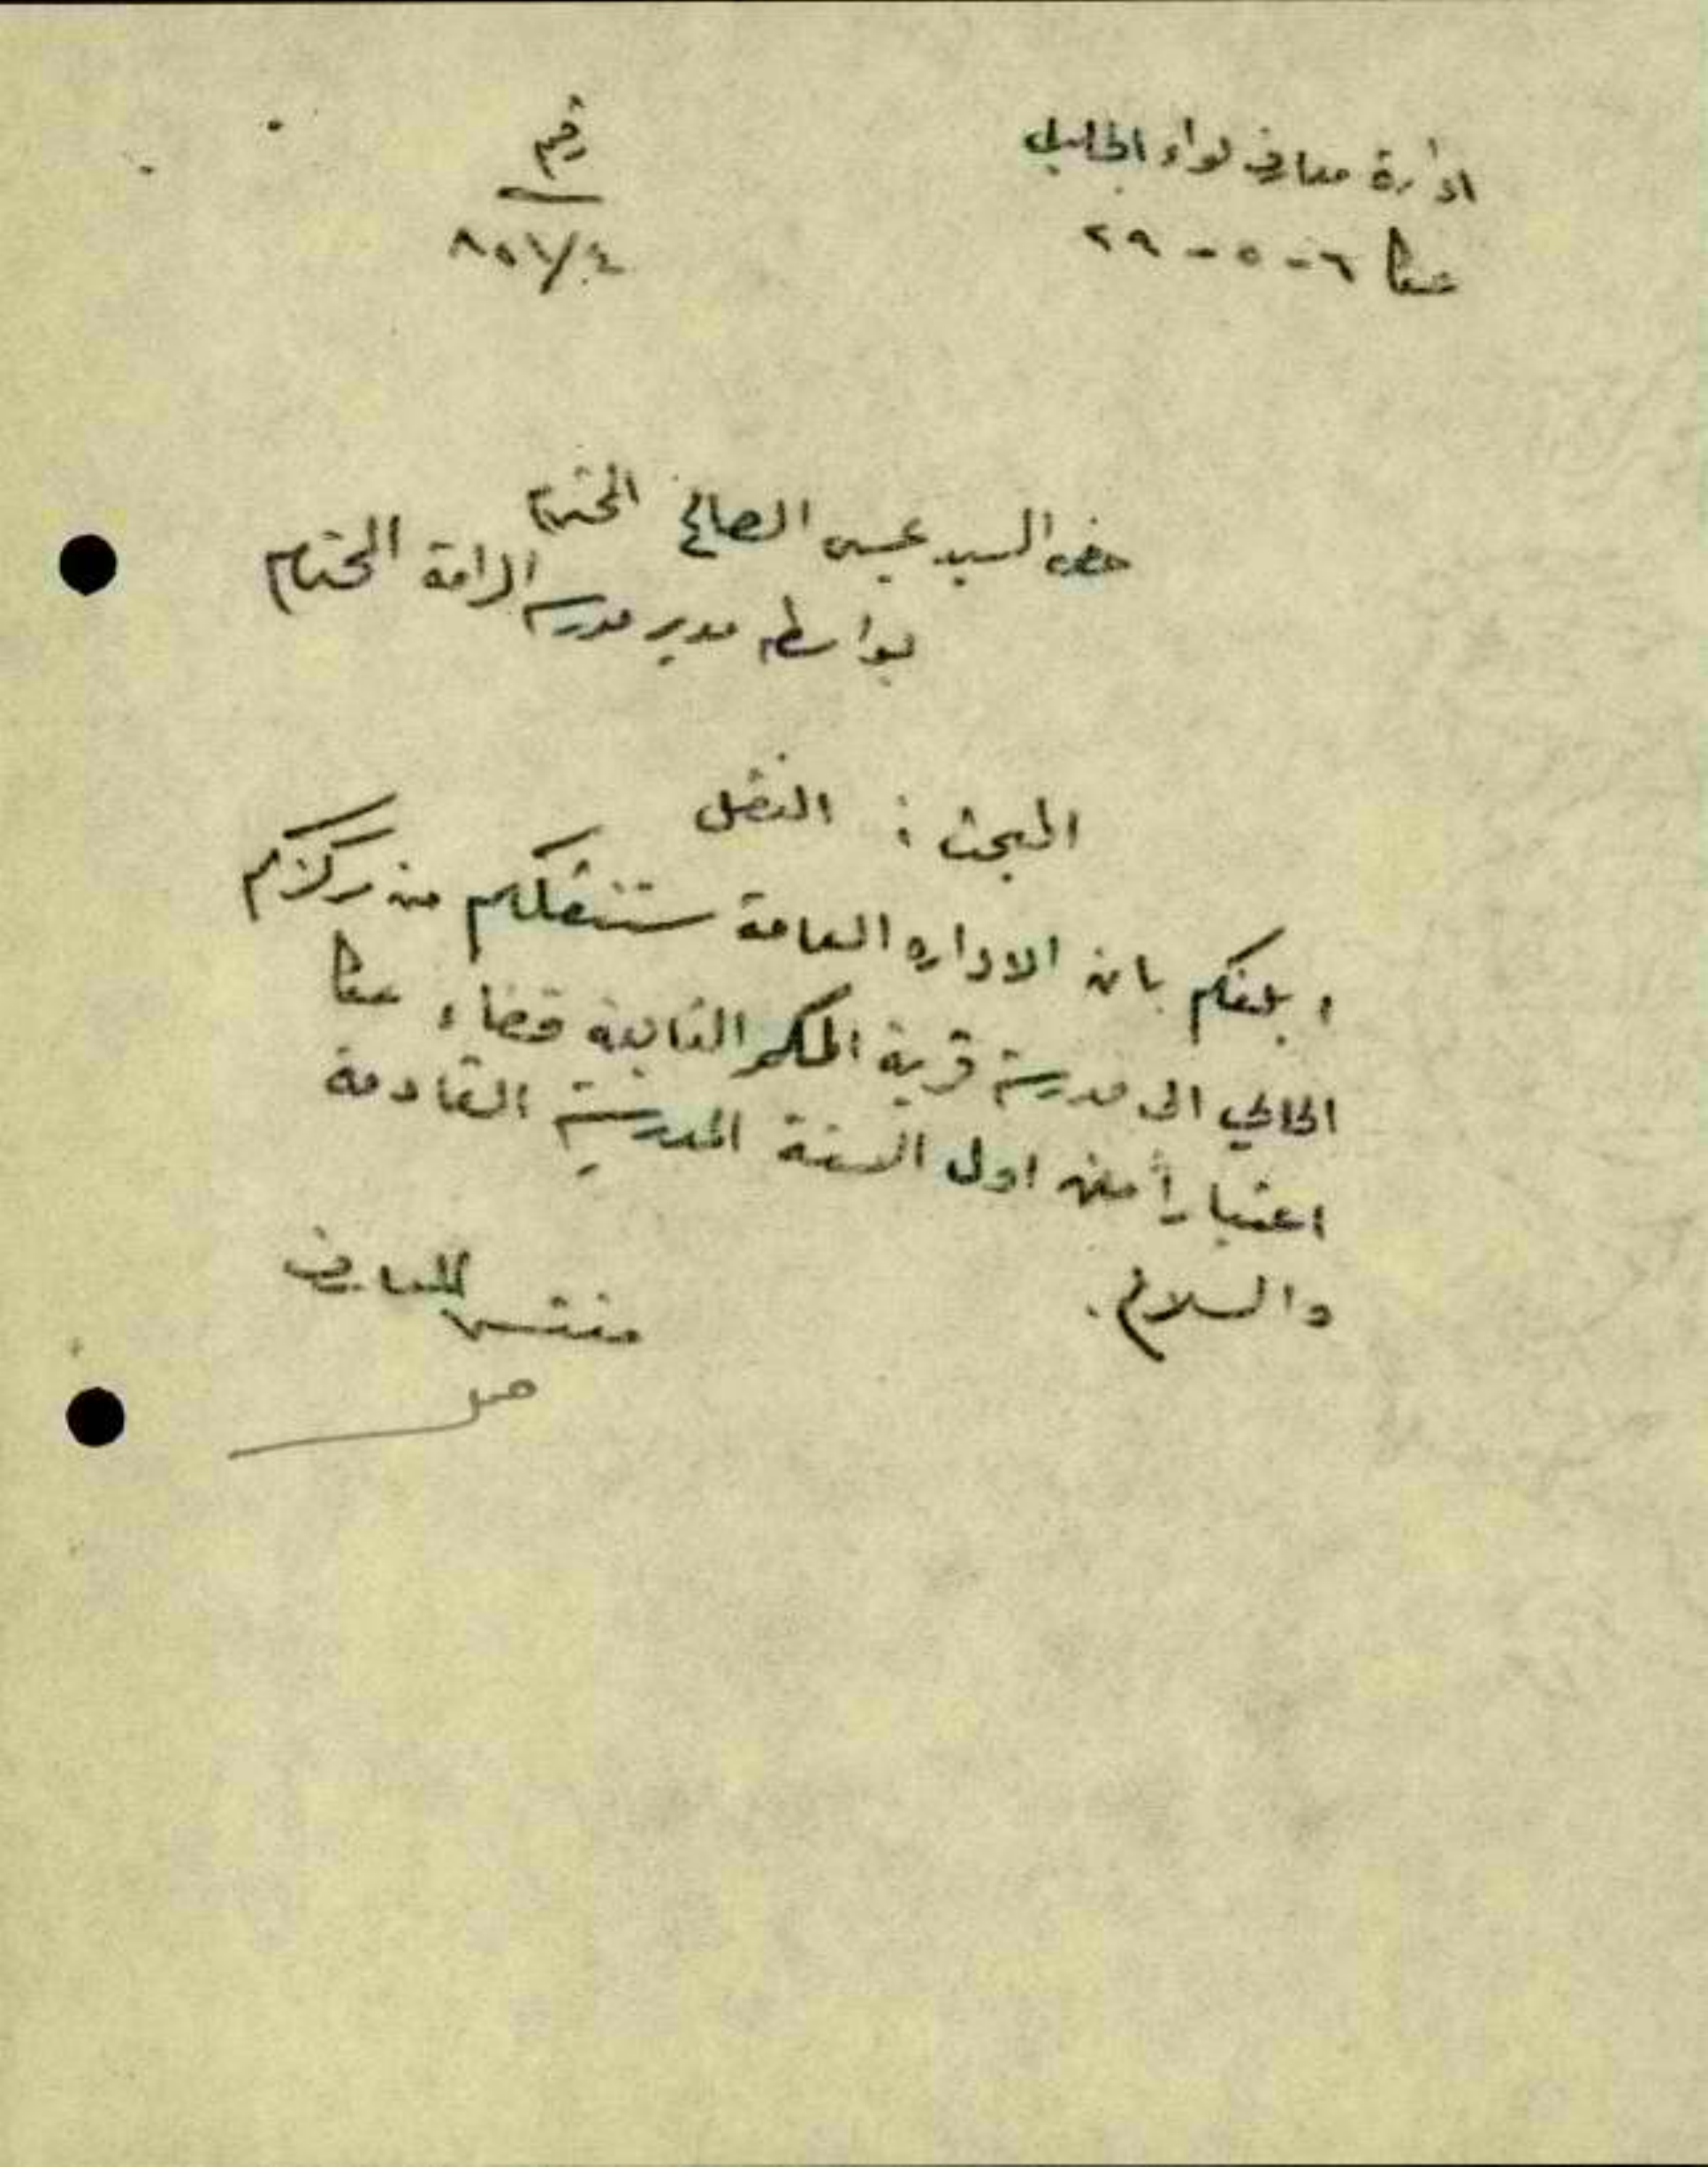 ادارة معارف لواء الجليل
عكا ٦ - ٥ - ٢٩
رقم
٨٥٦/٤
حضرة السيد عيسى الصالح المحترم
بواسطة مدير مدرسة الرامة المحترم
المبحث : النقل
ابلغكم بان الاداره العامة ستنقلكم من مركزكم
الحالي الى مدرسة قرية المكر التابعة قضاء عكا
اعتباراً من اول السنة المدرسية القادمة
والسلام .
مفتش المعارف